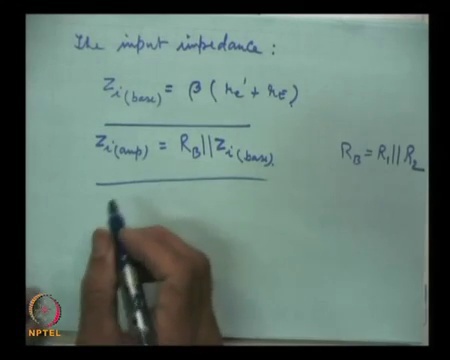 The input impedance :
Zi(base) = β ( re' + rE )
Zi(amp) = RB || Zi(base).
RB = R1 || R2
NPTEL